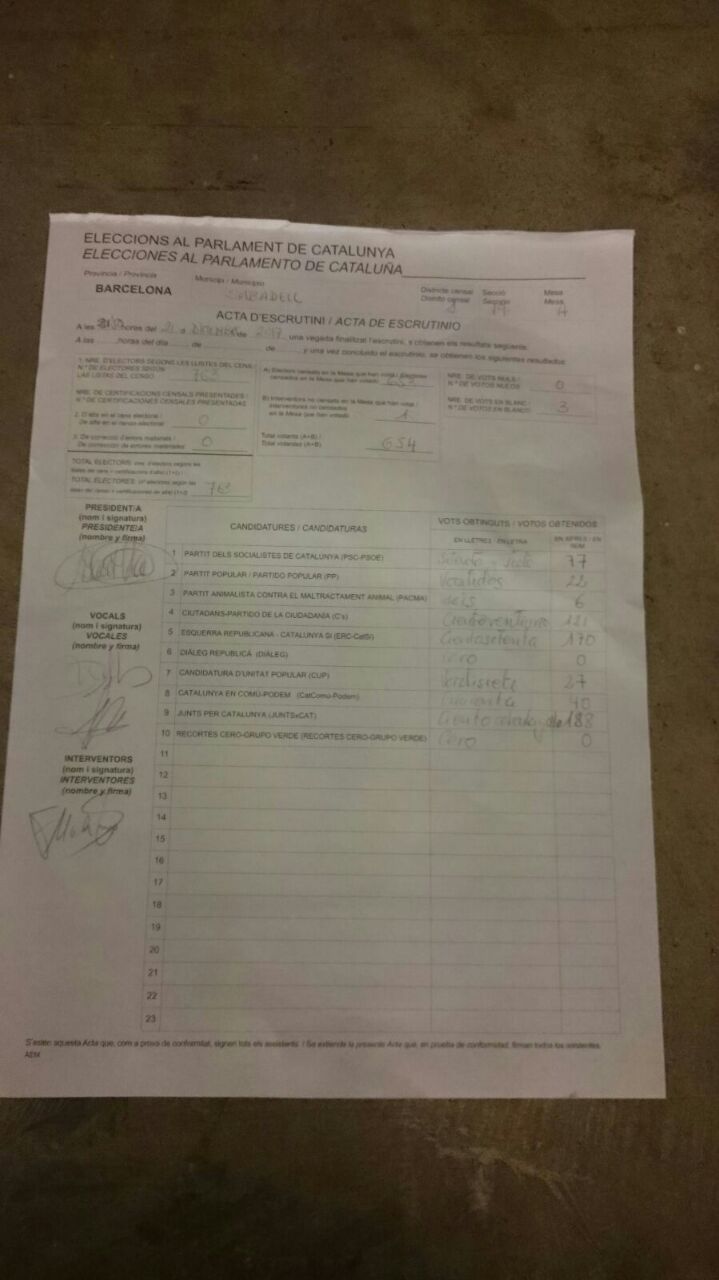 ELECCIONS AL PARLAMENT DE CATALUNYA
ELECCIONES AL PARLAMENTO DE CATALUÑA
Província / Provincia
Municipi / Municipio
Districte censal Secció Mesa
Distrito censal Sección Mesa
BARCELONA SABADELL
ACTA D'ESCRUTINI / ACTA DE ESCRUTINIO
A les hores del 21 d de 2017, una vegada finalitzat l'escrutini, s'obtenen els resultats següents:
A las horas del día de de y una vez concluido el escrutinio, se obtienen los siguientes resultados
1. NRE. D'ELECTORS SEGONS LES LLISTES DEL CENS /
N.º DE ELECTORES SEGÚN
LAS LISTAS DEL CENSO 763
NRE. DE CERTIFICACIONS CENSALS PRESENTADES /
N.º DE CERTIFICACIONES CENSALES PRESENTADAS
2. D'alta en el cens electoral /
De alta en el censo electoral 0
3. De correcció d'errors materials /
De corrección de errores materiales 0
TOTAL ELECTORS
TOTAL ELECTORES
A) Electors censats en la Mesa que han votat / Electores
censados en la Mesa que han votado 653
B) Interventors no censats en la Mesa que han votat /
Interventores no censados
en la Mesa que han votado 1
Total votants (A+B) /
Total votantes (A+B) 654
NRE. DE VOTS NULS /
N.º DE VOTOS NULOS 0
NRE. DE VOTS EN BLANC /
N.º DE VOTOS EN BLANCO 3
PRESIDENT/A
(nom i signatura)
PRESIDENTE/A
(nombre y firma)
VOCALS
(nom i signatura)
VOCALES
(nombre y firma)
INTERVENTORS
(nom i signatura)
INTERVENTORES
(nombre y firma)
CANDIDATURES / CANDIDATURAS
VOTS OBTINGUTS / VOTOS OBTENIDOS
EN LLETRES / EN LETRA EN XIFRES / EN NÚM
1 PARTIT DELS SOCIALISTES DE CATALUNYA (PSC-PSOE) 77
2 PARTIT POPULAR / PARTIDO POPULAR (PP) Veintidos 22
3 PARTIT ANIMALISTA CONTRA EL MALTRACTAMENT ANIMAL (PACMA) seis 6
4 CIUTADANS-PARTIDO DE LA CIUDADANÍA (C's) 121
5 ESQUERRA REPUBLICANA - CATALUNYA SÍ (ERC-CatSí) Cientosetenta 170
6 DIÀLEG REPUBLICÀ (DIÀLEG) cero 0
7 CANDIDATURA D'UNITAT POPULAR (CUP) 27
8 CATALUNYA EN COMÚ-PODEM (CatComú-Podem) cuarenta 40
9 JUNTS PER CATALUNYA (JUNTSxCAT) 188
10 RECORTES CERO-GRUPO VERDE (RECORTES CERO-GRUPO VERDE) Cero 0
11
12
13
14
15
16
17
18
19
20
21
22
23
S'estén aquesta Acta que, com a prova de conformitat, signen tots els assistents. / Se extiende la presente Acta que, en prueba de conformidad, firman todos los asistentes.